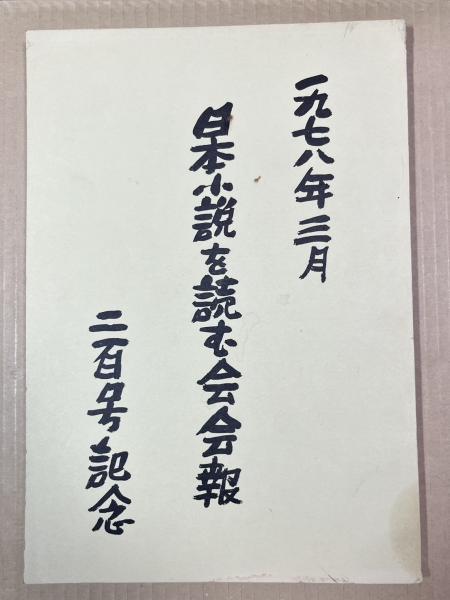 一九七八年三月
日本小説を読む会会報
二百号記念